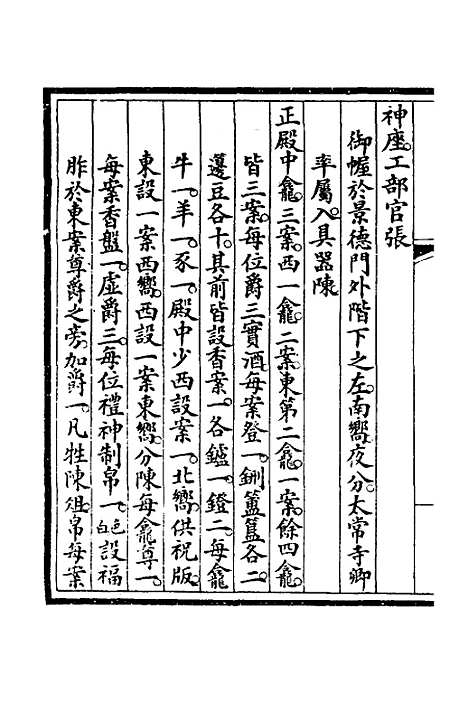 神座。工部官張
御幄於景德門外階下之左。南嚮。夜分。太常寺卿
率屬入。具器陳
正殿中龕。三案。西一龕。二案。東第二龕。一案。餘四龕。
皆三案。每位爵三。實酒。每案登一。鉶簠簋各二。
籩豆各十。其前皆設香案一。各鑪一。鐙二。每龕
牛一。羊一。豕一。殿中少西設案一。北嚮。供祝版。
東設一案西嚮。西設一案東嚮。分陳每龕尊一。
每案香盤一。虛爵三。每位禮神制帛一。色白設福
胙於東案尊爵之旁。加爵一。凡牲陳俎。帛每案